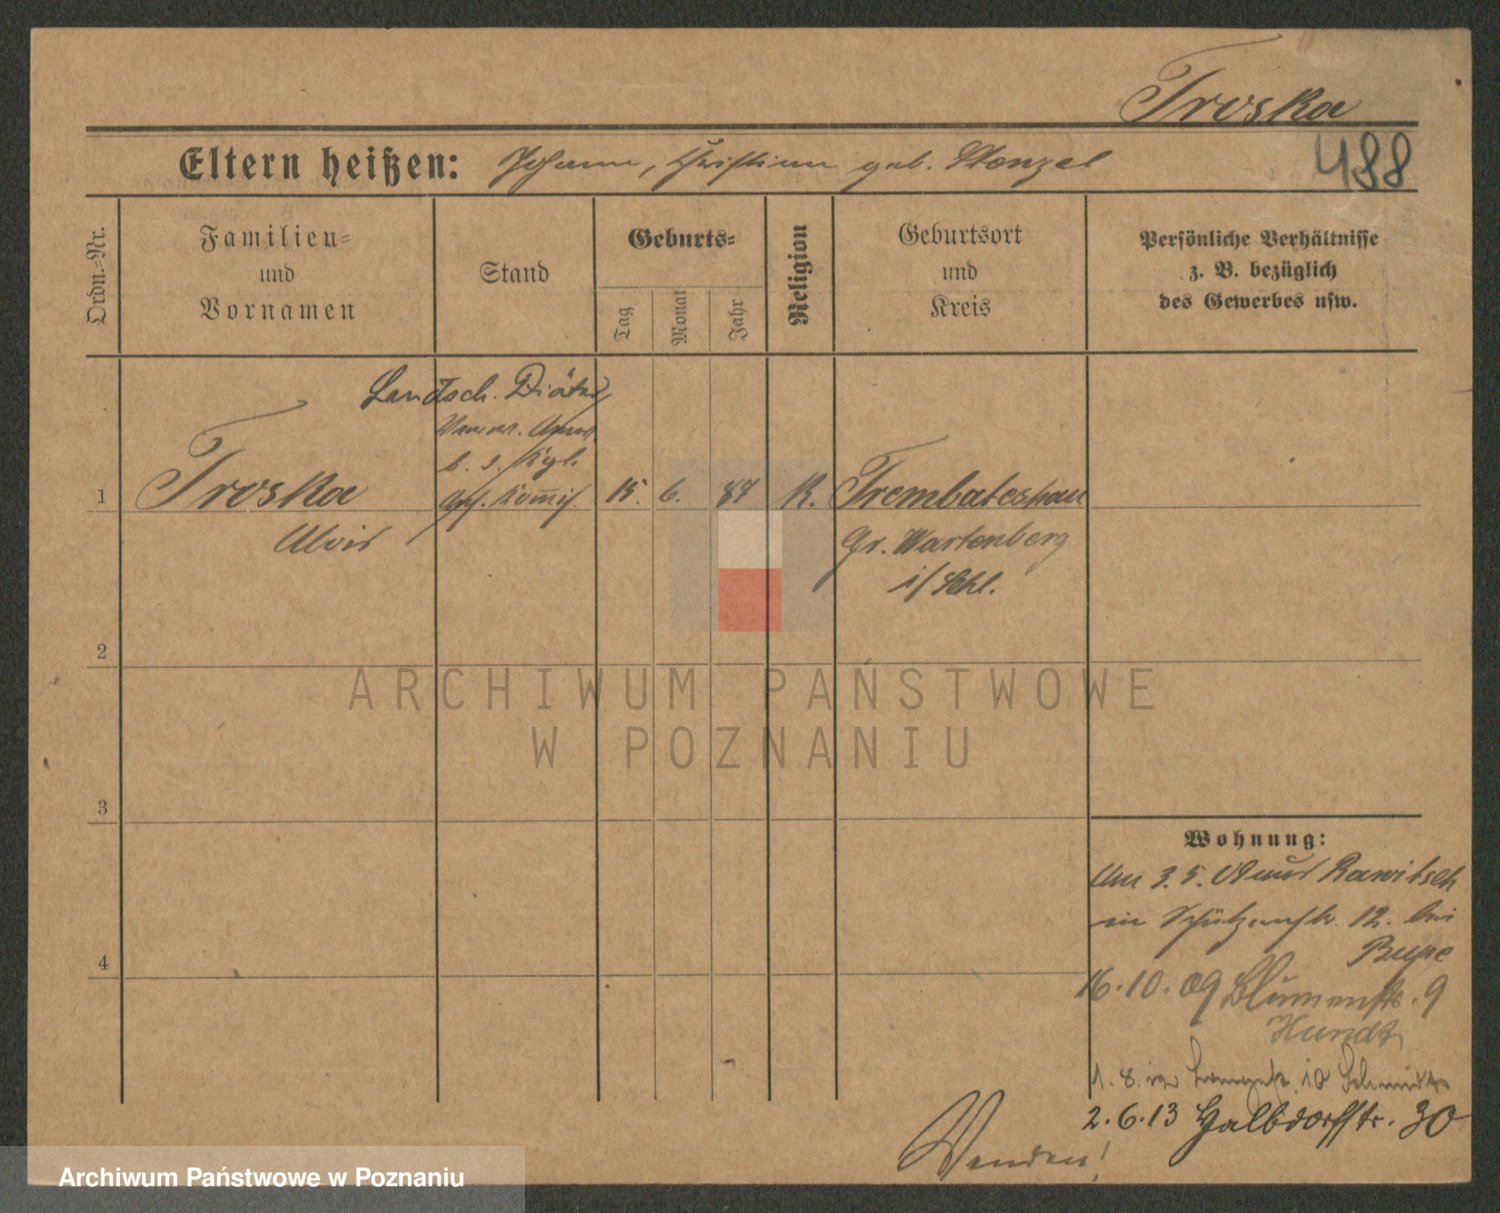 Troska
488
Eltern heißen: Johann, Christiane geb. Stenzel
Ordn.-Nr.
Familien-
und
Vornamen
Stand
Geburts-
Tag
Monat
Jahr
Religion
Geburtsort
und
Kreis
Persönliche Verhältnisse
z. B. bezüglich
des Gewerbes usw.
Landsch. Diätar
b. d. Kgl.
Ans. Kommis.
1 Troska 15. 6. 87 K. Trembatschau
Alois Gr. Wartenberg
i/ Schl.
2
ARCHIWUM PAŃSTWOWE
W POZNANIU
3
Wohnung:
Am 3. 5. Rawitsch
in Schützenstr. 12. bei
4
16.10.09 Blumenstr. 9
Hundt
1. 8. 10 Schmidt
2.6.13 Halbdorfstr. 30
Wenden!
Archiwum Państwowe w Poznaniu